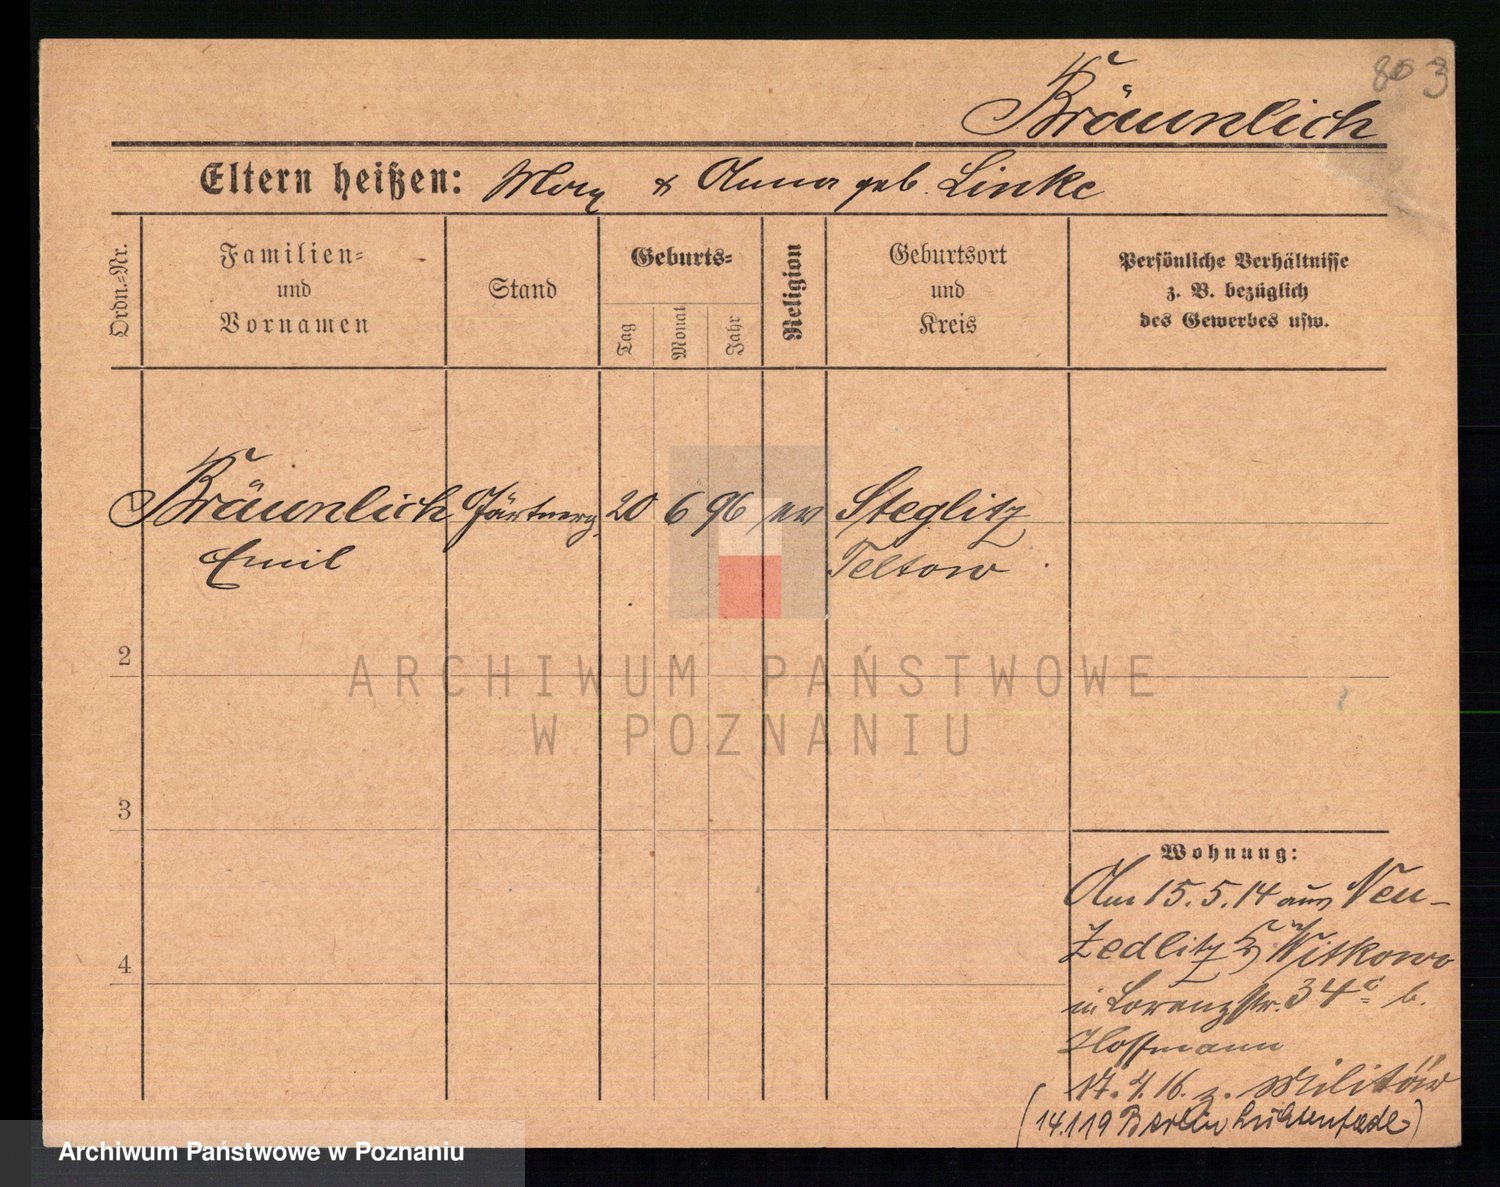 803
Bräunlich
Eltern heißen: Max & Anna geb. Linke
Ordn.-Nr.
Familien-
und
Vornamen
Stand
Geburts-
Tag
Monat
Jahr
Religion
Geburtsort
und
Kreis
Persönliche Verhältnisse
z. B. bezüglich
des Gewerbes usw.
Bräunlich Gärtnerg. 20 6 96 ev Steglitz
Emil Teltow
2
3
4
ARCHIWUM PAŃSTWOWE
W POZNANIU
Wohnung:
Am 15.5.14 aus Neu-
Zedlitz Witkowo
in Lorenzstr. 34 b.
Hoffmann
17.4.16. z. Militär
(14.1.19 Berlin Lichterfelde)
Archiwum Państwowe w Poznaniu